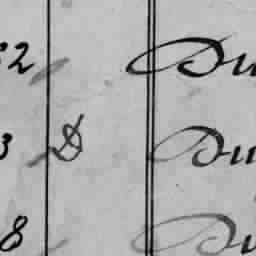 32 Du
3 D Du
8 Du